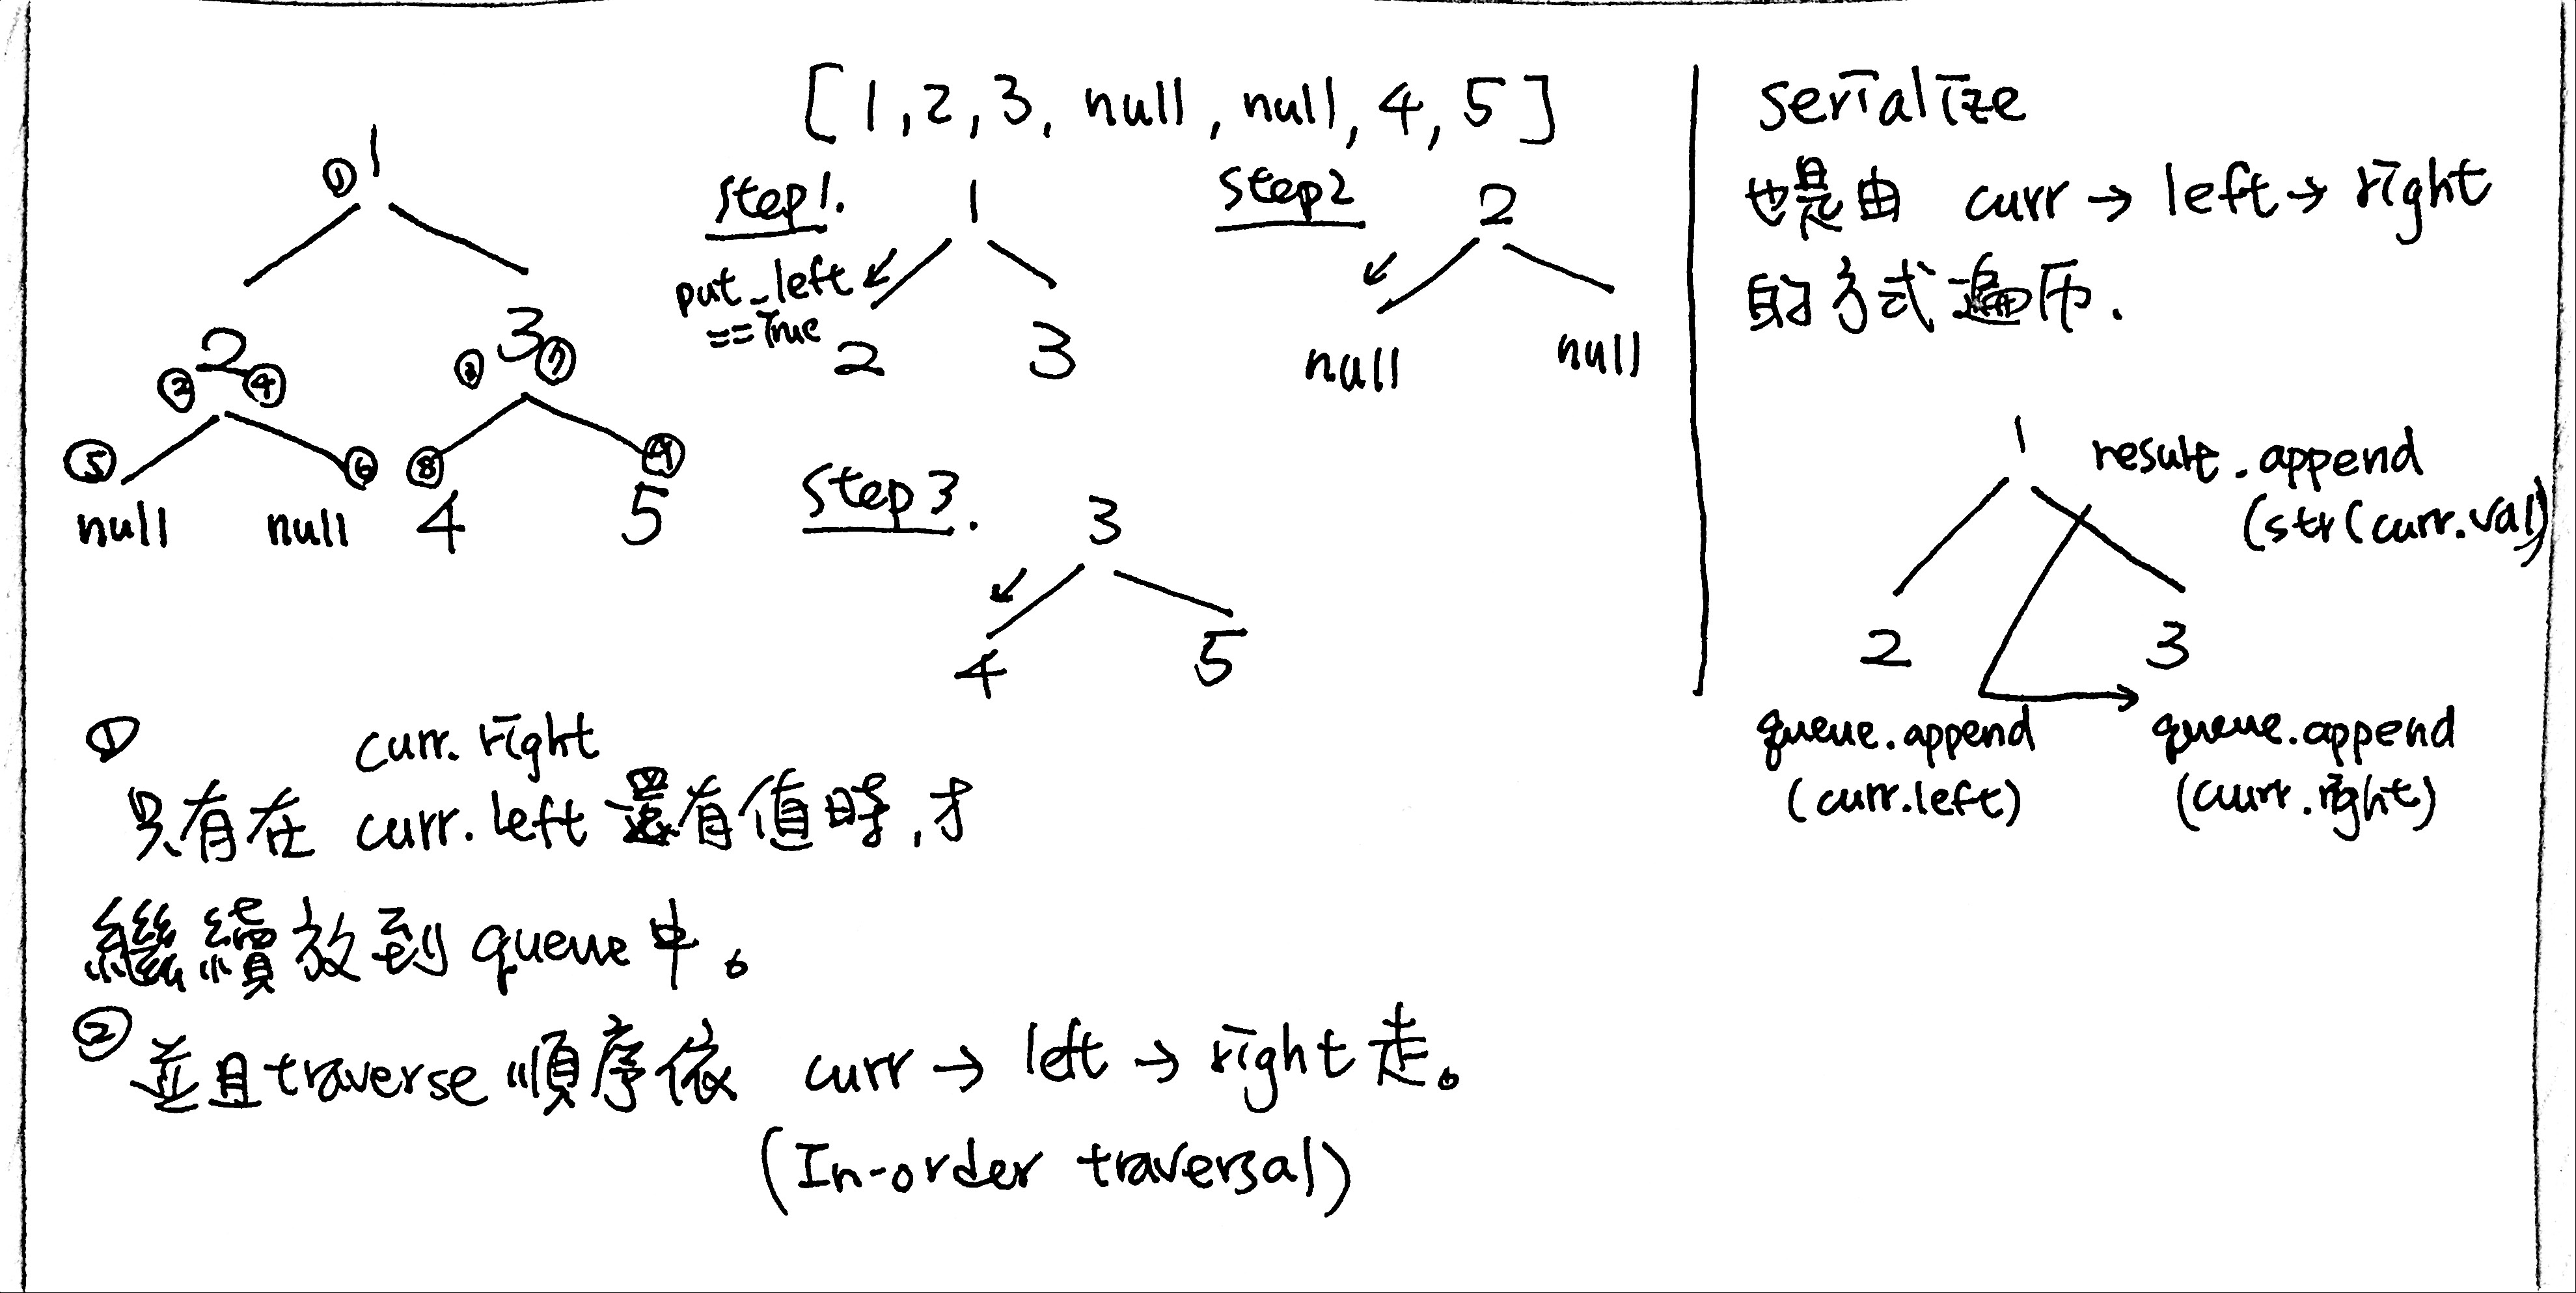 [1,2,3, null, null, 4, 5]
① 1
2
② ④
3
③ ⑦
⑤ ⑥ ⑧ ⑨
null null 4 5
step1.
1
put_left
==True
2 3
step2
2
null null
step3.
3
4 5
①
curr.right
只有在 curr.left 還有值時,才
繼續放到 queue 中。
② 並且traverse 順序依 curr → left → right 走。
(In-order traversal)
serialize
也是由 curr → left → right
的方式遍历.
1
result.append
(str(curr.val)
2 3
queue.append
(curr.left)
queue.append
(curr.right)